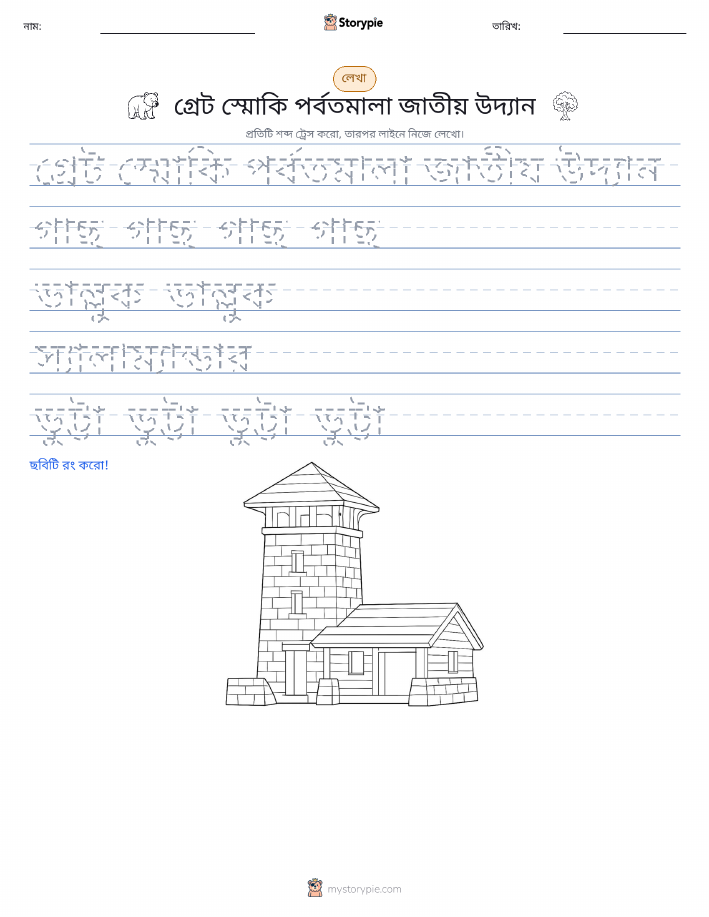 নাম:
Storypie
তারিখ:
লেখা
গ্রেট স্মোকি পর্বতমালা জাতীয় উদ্যান
প্রতিটি শব্দ ট্রেস করো, তারপর লাইনে নিজে লেখো।
গ্রেট স্মোকি পর্বতমালা জাতীয় উদ্যান
গাছ গাছ গাছ গাছ
ভাল্লুক ভাল্লুক
স্যালাম্যান্ডার
ভুট্টা ভুট্টা ভুট্টা ভুট্টা
ছবিটি রং করো!
mystorypie.com